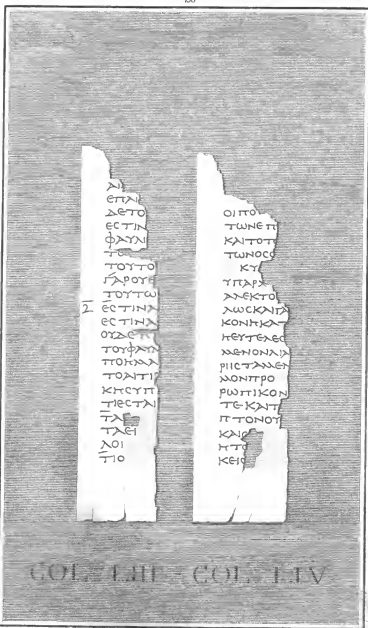 ΑΙ
ΕΠΑΙ
ΔΕΤΟ
ΕϹΤΙΝ
ΦΑΥΛΙ
ΤΟ
ΤΟΥΤΟ
ΓΑΡΟΥΤ
ΤΟΥΤΩ
ΕϹΤΙΝΑ
ΕϹΤΙΝΑ
ΟΥΔΕ
ΤΟΥΦΑΥ
ΠΟΛΛΑ
ΤΟΑΙΤΙ
ΚΗϹΥΠ
ΤΙΕϹΤΑΙ
ΤΑ
ΤΑΕΙ
ΛΟΙ
ΤΙΟ
ΟΙΠΟ
ΤΩΝΕΠ
ΚΑΙΤΟΤΙ
ΤΩΝΟϹΟ
ΚΥ
ΥΠΑΡΧ
ΑΛΕΚΤΟ
ΛΩϹΚΑΙΠΑ
ΚΟΝΗΚΑ
ΠΕΥΤΕΛΕϹ
ΡΩΠΙΚΟΝ
ΤΕΚΑΙΠ
ΠΤΟΝΟΥ
ΚΑΙϹ
ΗΤΟ
ΚΕΙϹ
COL. LIII COL. LIV